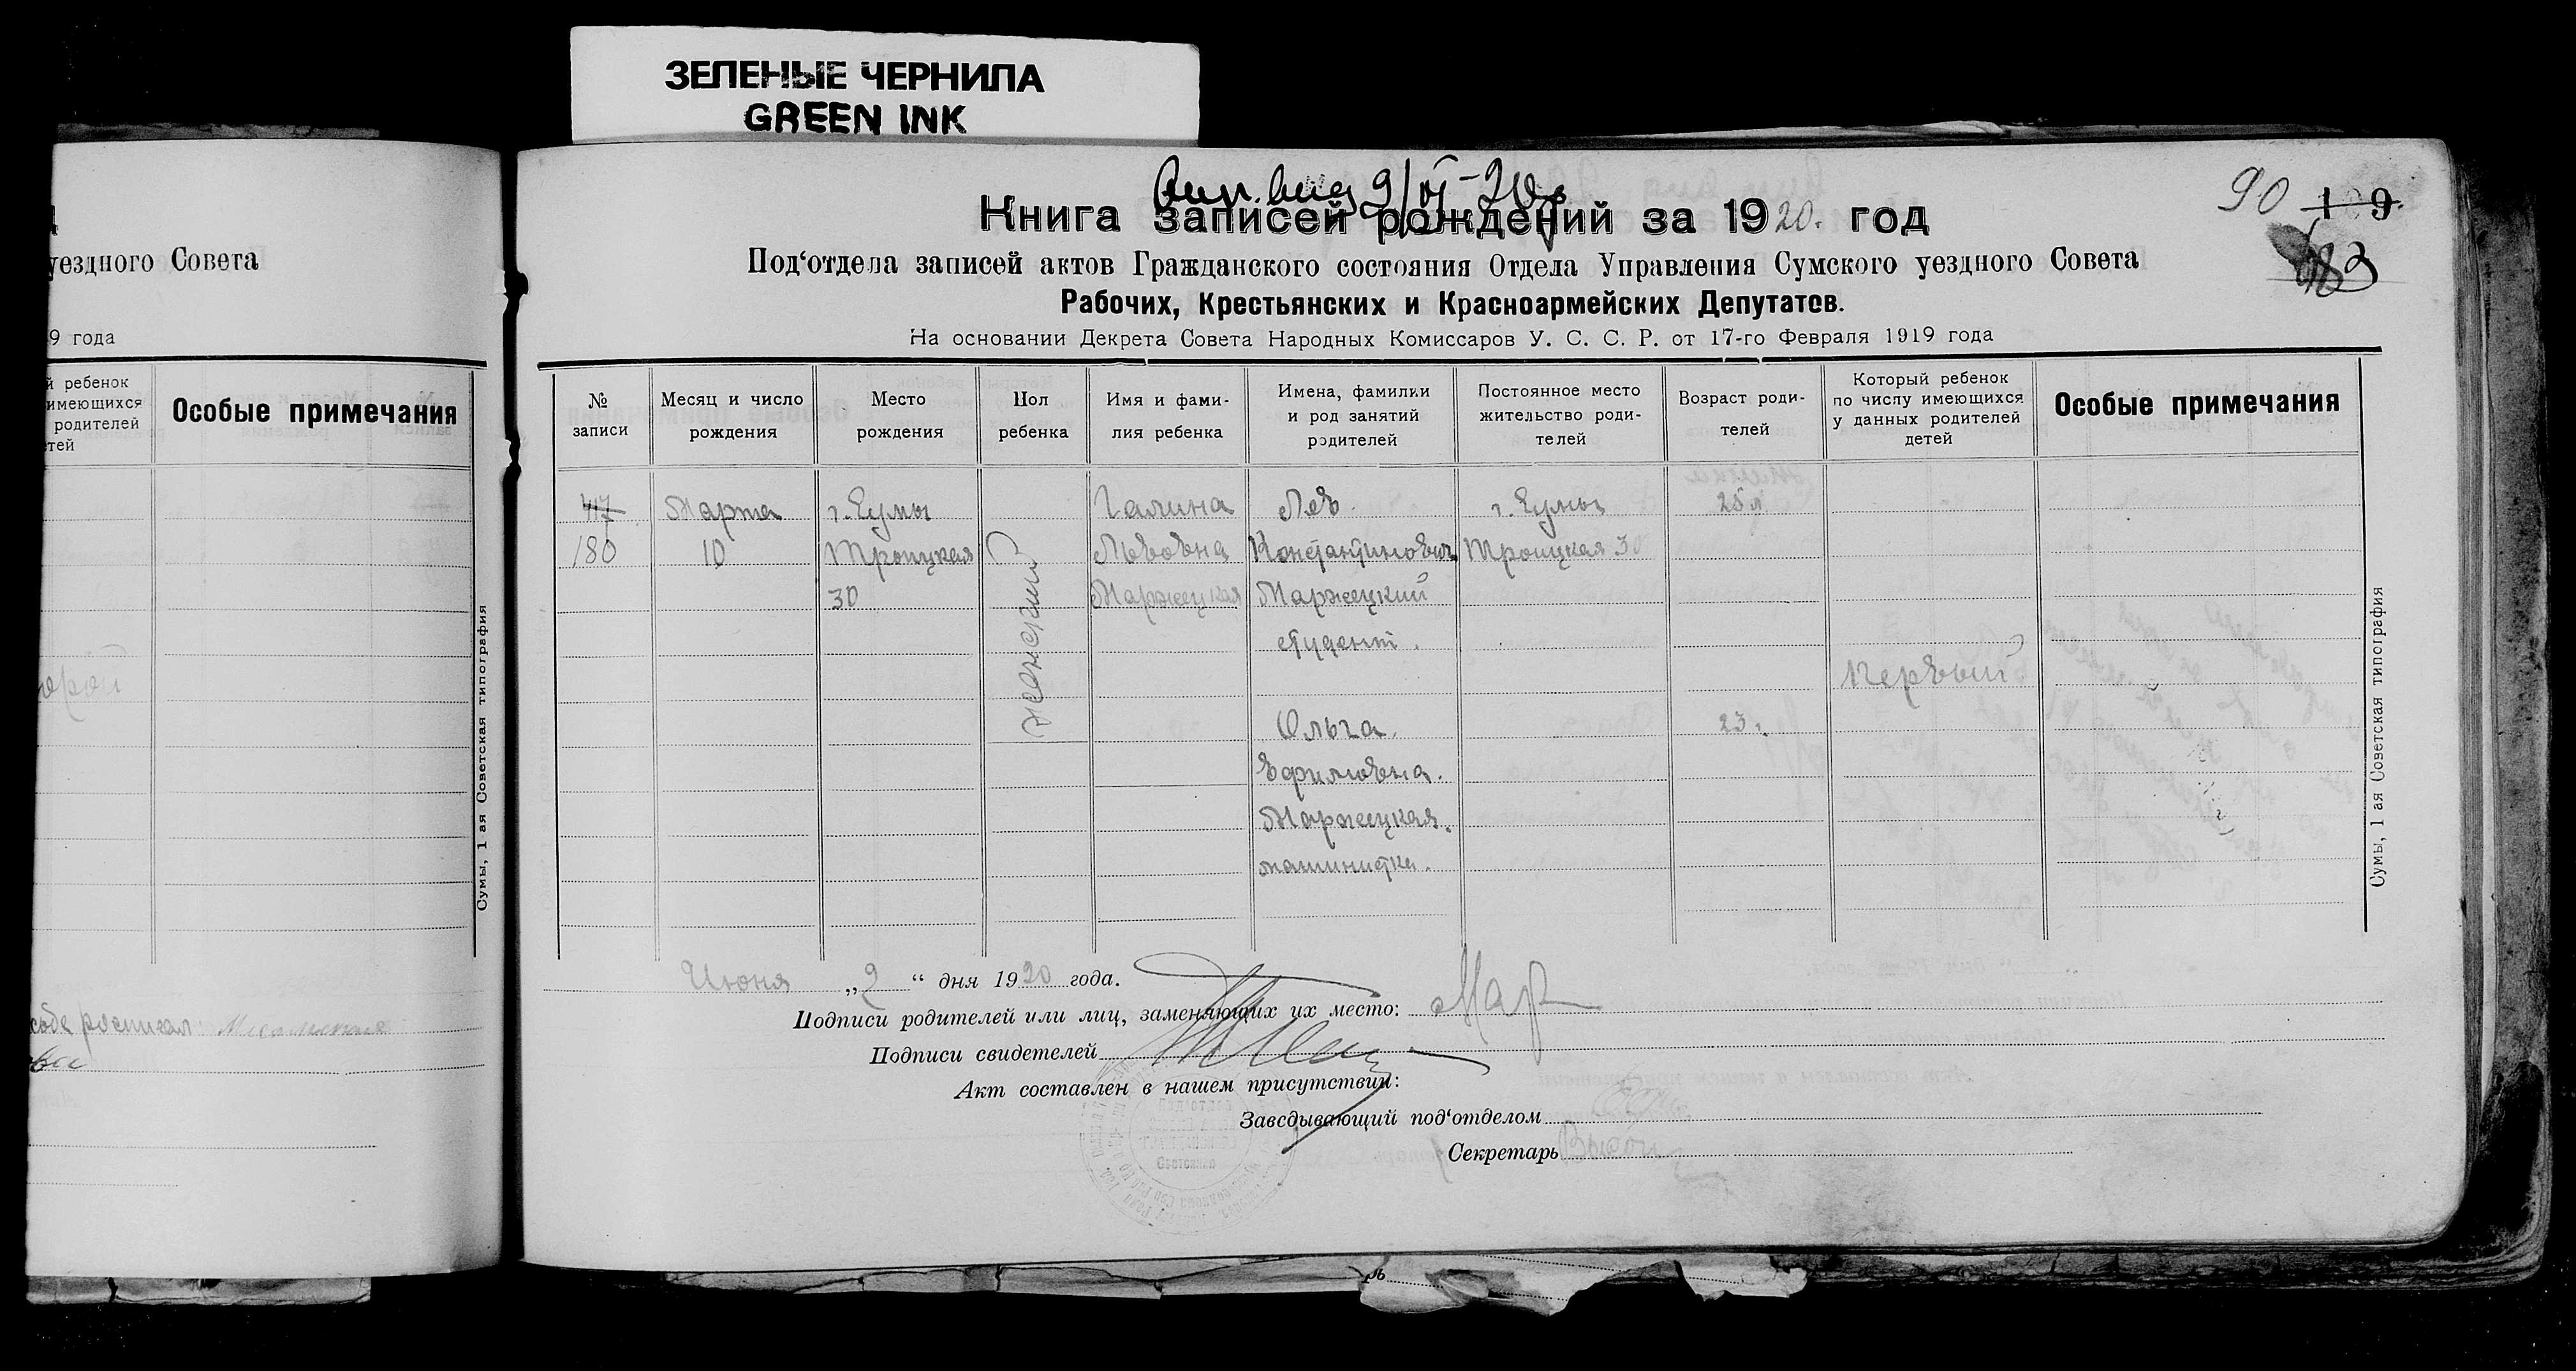 ЗЕЛЕНЫЕ ЧЕРНИЛА
GREEN INK
уездного Совета
9 года
й ребенок
имеющихся
родителей
тей
Особые примечания
Сумы, 1 ая Советская типография
9/VI-20г.
90 1 9.
Книга записей рождений за 1920. год
Под‘отдела записей актов Гражданского состояния Отдела Управления Сумского уездного Совета
Рабочих, Крестьянских и Красноармейских Депутатов.
На основании Декрета Совета Народных Комиссаров У. С. С. Р. от 17-го Февраля 1919 года
№ записи
Месяц и число рождения
Место рождения
Пол ребенка
Имя и фами-
лия ребенка
Имена, фамилии
и род занятий
родителей
Постоянное место
жительство роди-
телей
Возраст роди-
телей
Который ребенок
по числу имеющихся
у данных родителей
детей
Особые примечания
417 Марта г. Сумы Галина Лев г. Сумы 25 л
180 10 Троицкая Львовна Константинович Троицкая 30
30 Маржецкая Маржецкий
женский
студент.
Первый
Ольга 23 г.
Ефимовна.
Маржецкая.
машинистка.
Сумы, 1 ая Советская типография
Июня „2“ дня 1920 года.
Подписи родителей или лиц, заменяющих их место: Мар
Подписи свидетелей
Акт составлен в нашем присутствии:
Заведывающий под‘отделом
Секретарь